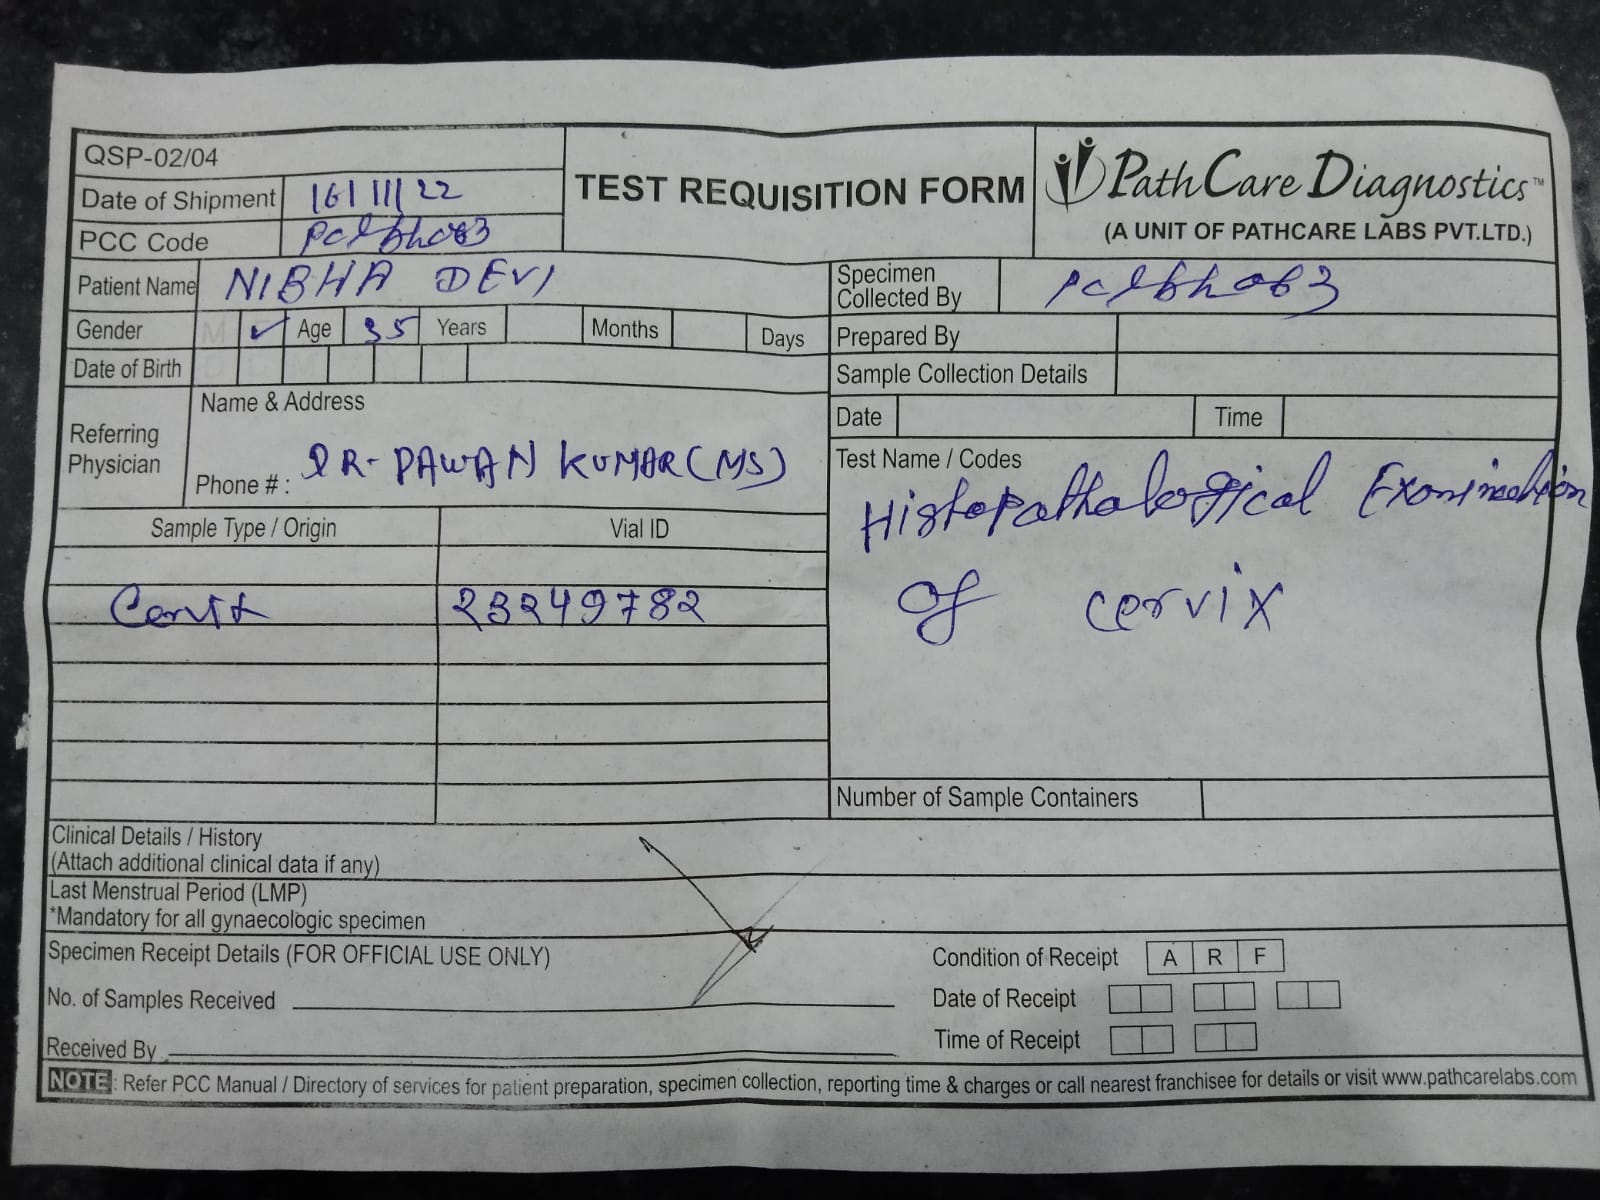 QSP-02/04
Date of Shipment 16/11/22
PCC Code pclbh063
TEST REQUISITION FORM
PathCare Diagnostics™
(A UNIT OF PATHCARE LABS PVT.LTD.)
Patient Name NIBHA DEVI
Gender M ✓ Age 35 Years Months Days
Date of Birth
Referring Physician
Name & Address
DR- PAWAN KUMAR (MS)
Phone # :
Specimen Collected By pclbh063
Prepared By
Sample Collection Details
Date Time
Sample Type / Origin Vial ID
23249782
Test Name / Codes
Histopathological Examination
of cervix
Number of Sample Containers
Clinical Details / History
(Attach additional clinical data if any)
Last Menstrual Period (LMP)
*Mandatory for all gynaecologic specimen
Specimen Receipt Details (FOR OFFICIAL USE ONLY)
No. of Samples Received
Received By
Condition of Receipt A R F
Date of Receipt
Time of Receipt
NOTE : Refer PCC Manual / Directory of services for patient preparation, specimen collection, reporting time & charges or call nearest franchisee for details or visit www.pathcarelabs.com